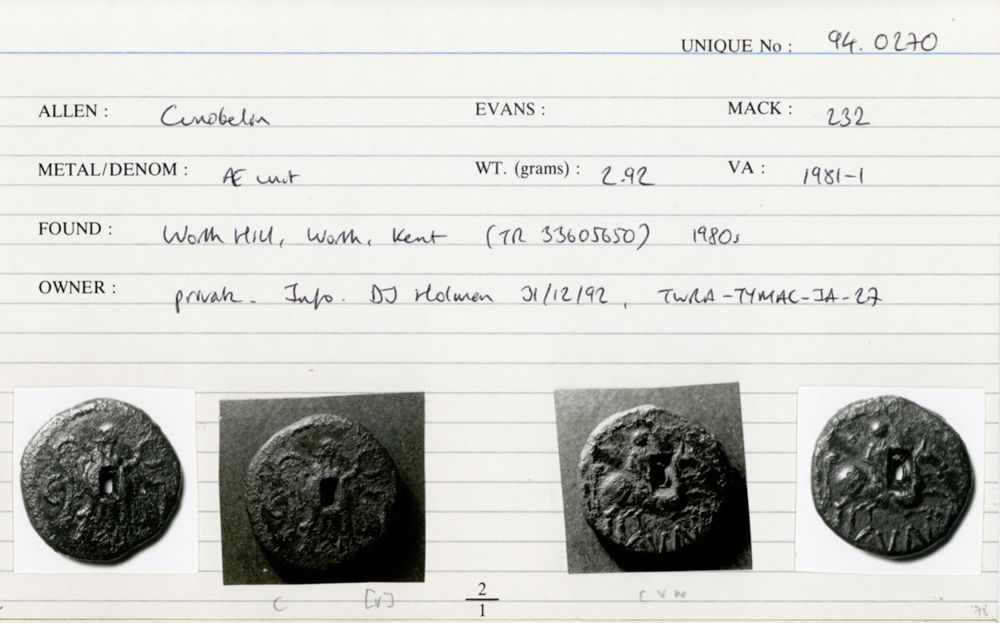 UNIQUE No : 94.0270
ALLEN : Cunobelin EVANS : MACK : 232
METAL/DENOM : Æ unit WT. (grams) : 2.92 VA : 1981-1
FOUND : Worth Hill, Worth, Kent (TR 33605650) 1980s
OWNER : private. Info. DJ Holman 31/12/92, TWRA-TYMAC-IA-27
C [V] 2/1 C V N